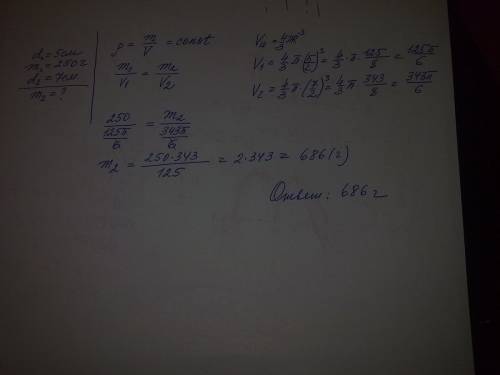 d₁ = 5см
m₁ = 250г
d₂ = 7см
m₂ = ?
ρ = m/V = const
m₁/V₁ = m₂/V₂
V = 4/3 πR³
V₁ = 4/3 · π · (5/2)³ = 4/3 · π · 125/8 = 125π/6
V₂ = 4/3 π · (7/2)³ = 4/3 π · 343/8 = 343π/6
250/(125π/6) = m₂/(343π/6)
m₂ = 250·343/125 = 2·343 = 686 (г)
Ответ: 686 г